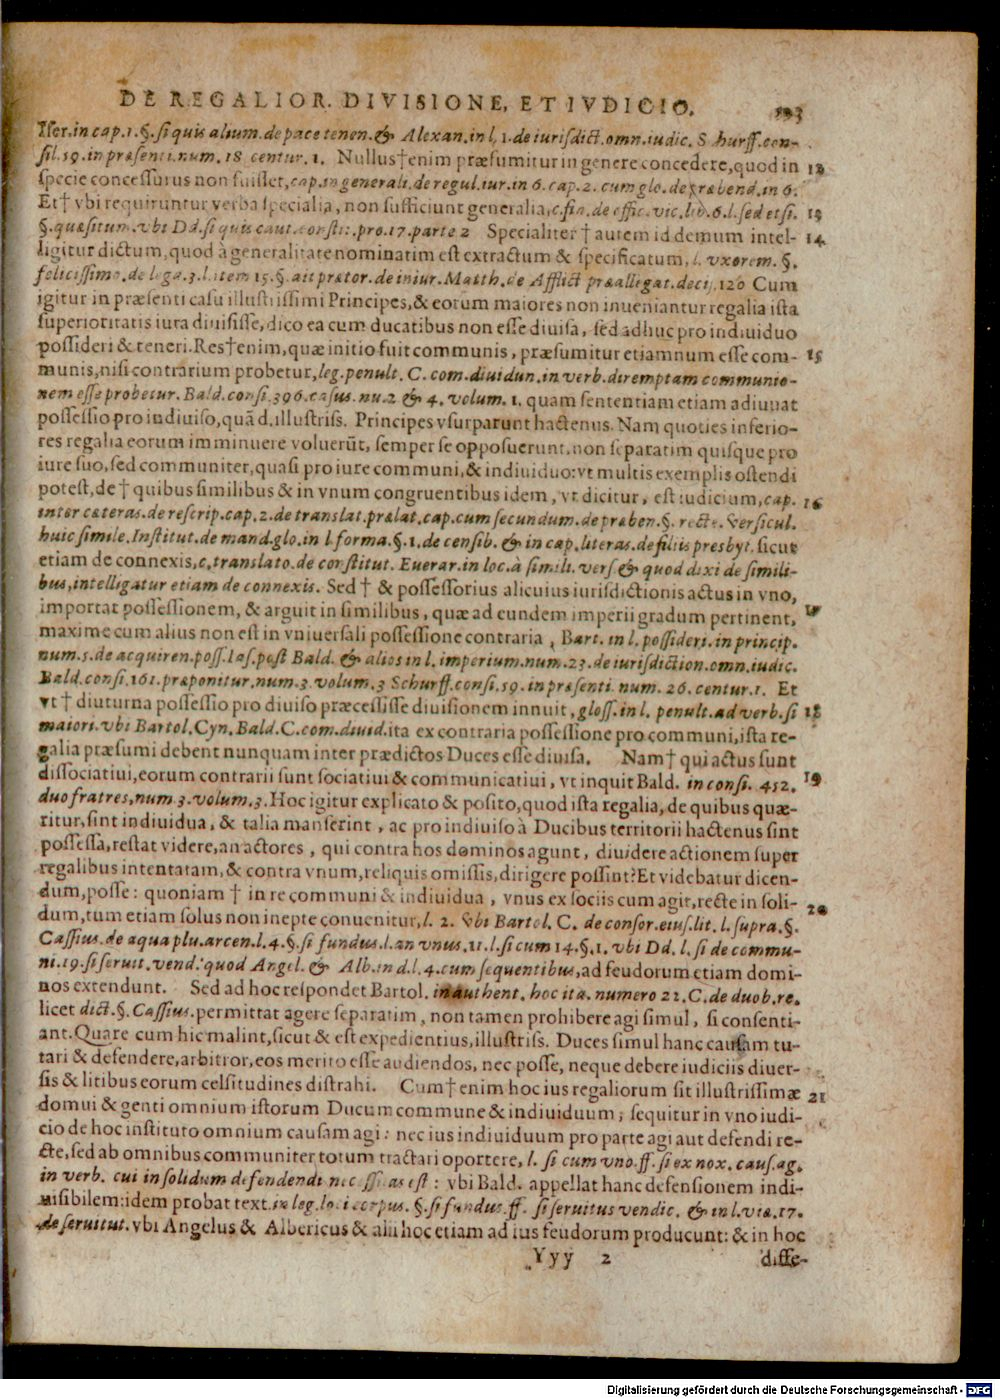 DE REGALIOR. DIVISIONE, ET IVDICIO.
Iser. in cap. 1. §. si quis alium. de pace tenen. & Alexan. in l. 1. de iurisdict. omn. iudic. Schurff. con-
sil. 59. in præsenti. num. 18 centur. 1. Nullus† enim præsumitur in genere concedere, quod in 12
specie concessurus non fuisset, cap. in generali. de regul. iur. in 6. cap. 2. cum glo. de præbend. in 6.
Et† vbi requiruntur verba specialia, non sufficiunt generalia, c. fin. de offic. vic. lib. 6. l. sed etsi. 13
§. quæsitum. vbi Dd. si quis caut. constit. pro. 17. parte 2 Specialiter† autem id demum intel- 14
ligitur dictum, quod à generalitate nominatim est extractum & specificatum, l. vxorem. §.
felicissimo. de lega. 3. l. item 15. §. ait prætor. de iniur. Matth. de Afflict præallegat. decis. 120 Cum
igitur in præsenti casu illustrissimi Principes, & eorum maiores non inueniantur regalia ista
superioritatis iura diuisisse, dico ea cum ducatibus non esse diuisa, sed adhuc pro indiuiduo
possideri & teneri. Res† enim, quæ initio fuit communis, præsumitur etiamnum esse com- 15
munis, nisi contrarium probetur, leg. penult. C. com. diuidun. in verb. diremptam communio-
nem esse probetur. Bald. consi. 396. casus. nu. 2 & 4. volum. 1. quam sententiam etiam adiuuat
possessio pro indiuiso, quā d. illustriss. Principes vsurparunt hactenus. Nam quoties inferio-
res regalia eorum imminuere voluerūt, semper se opposuerunt. non separatim quisque pro
iure suo, sed communiter, quasi pro iure communi, & indiuiduo: vt multis exemplis ostendi
potest, de† quibus similibus & in vnum congruentibus idem, vt dicitur, est iudicium, cap. 16
inter cæteras. de rescrip. cap. 2. de translat. prælat. cap. cum secundum. de præben. §. recte. versicul.
huic simile. Institut. de mand. glo. in l. forma. §. 1. de censib. & in cap. literas. de filiis presbyt. sicut
etiam de connexis, c. translato. de constitut. Euerar. in loc. à simili. vers. & quod dixi de simili-
bus, intelligatur etiam de connexis. Sed† & possessorius alicuius iurisdictionis actus in vno,
importat possessionem, & arguit in similibus, quæ ad eundem imperii gradum pertinent,
maxime cum alius non est in vniuersali possessione contraria, Bart. in l. possideri. in princip.
num. 5. de acquiren. poss. Ias. post Bald. & alios in l. imperium. num. 23. de iurisdiction. omn. iudic.
Bald. consi. 161. præponitur, num. 3. volum. 3 Schurff. consi. 59. in præsenti. num. 26. centur. 1. Et
vt† diuturna possessio pro diuiso præcessisse diuisionem innuit, gloss. in l. penult. ad verb. si 18
maiori. vbi Bartol. Cyn. Bald. C. com. diuid. ita ex contraria possessione pro communi, ista re-
galia præsumi debent nunquam inter prædictos Duces esse diuisa. Nam† qui actus sunt
dissociatiui, eorum contrarii sunt sociatiui & communicatiui, vt inquit Bald. in consi. 452. 19
duo fratres, num. 3. volum. 3. Hoc igitur explicato & posito, quod ista regalia, de quibus quæ-
ritur, sint indiuidua, & talia manserint, ac pro indiuiso à Ducibus territorii hactenus sint
possessa, restat videre, an actores, qui contra hos dominos agunt, diuidere actionem super
regalibus intentatam, & contra vnum, reliquis omissis, dirigere possint? Et videbatur dicen-
dum, posse: quoniam† in re communi & indiuidua, vnus ex sociis cum agit, recte in soli- 20
dum, tum etiam solus non inepte conuenitur, l. 2. vbi Bartol. C. de consor. eius. lit. l. supra. §.
Cassius. de aqua plu. arcen. l. 4. §. si fundus. l. an vnus. 11. l. si cum 14. §. 1. vbi Dd. l. si de commu-
ni. 19. si seruit. vend. quod Angel. & Alb. in d. l. 4. cum sequentibus, ad feudorum etiam domi-
nos extendunt. Sed ad hoc respondet Bartol. in authent. hoc ita. numero 22. C. de duob. re.
licet dict. §. Cassius. permittat agere separatim, non tamen prohibere agi simul, si consenti-
ant. Quare cum hic malint, sicut & est expedientius, illustriss. Duces simul hanc causam tu-
tari & defendere, arbitror, eos merito esse audiendos, nec posse, neque debere iudiciis diuer-
sis & litibus eorum celsitudines distrahi. Cum† enim hoc ius regaliorum sit illustrissimæ 21
domui & genti omnium istorum Ducum commune & indiuiduum, sequitur in vno iudi-
cio de hoc instituto omnium causam agi: nec ius indiuiduum pro parte agi aut defendi re-
cte, sed ab omnibus communiter totum tractari oportere, l. si cum vno. ff. si ex nox. caus. ag.
in verb. cui in solidum defendendi necessitas est: vbi Bald. appellat hanc defensionem indi-
uisibilem: idem probat text. in leg. loci corpus. §. si fundus. ff. si seruitus vendic. & in l. via. 17.
de seruitut. vbi Angelus & Albericus & alii hoc etiam ad ius feudorum producunt: & in hoc
Yyy 2 diffe-
Digitalisierung gefördert durch die Deutsche Forschungsgemeinschaft - DFG